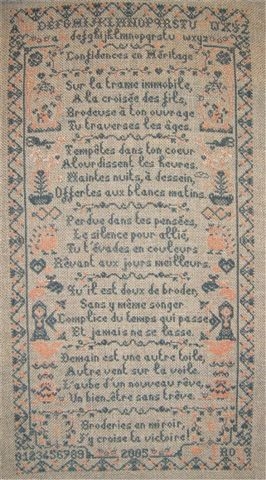 DEFGHIJKLMNOPQRSTU WXYZ
defghijklmnopqrstu wxyz
Confidences en Héritage
Sur la trame immobile,
A la croisée des fils,
Brodeuse à ton ouvrage
Tu traverses les âges.
Tempêtes dans ton coeur
Alourdissent les heures.
Maintes nuits, à dessein,
Offertes aux blancs matins.
Perdue dans tes pensées,
Le silence pour allié,
Tu t'évades en couleurs
Rêvant aux jours meilleurs.
Qu'il est doux de broder
Sans y même songer
Complice du temps qui passe
Et jamais ne se lasse.
Demain est une autre toile,
Autre vent sur la voile
L'aube d'un nouveau rêve,
Un bien-être sans trêve.
Broderies en miroir,
J'y croise ta victoire!
0123456789 2005